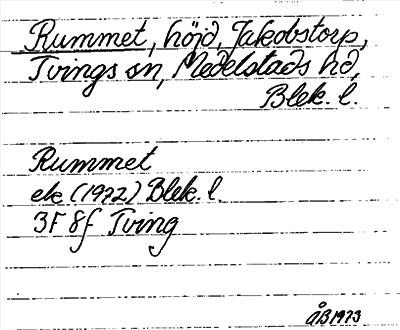 Rummet, höjd, Jakobstorp,
Tvings sn, Medelstads hd,
Blek. l.
Rummet
ek (1972) Blek. l.
3F 8f Tving
ÅB 1973